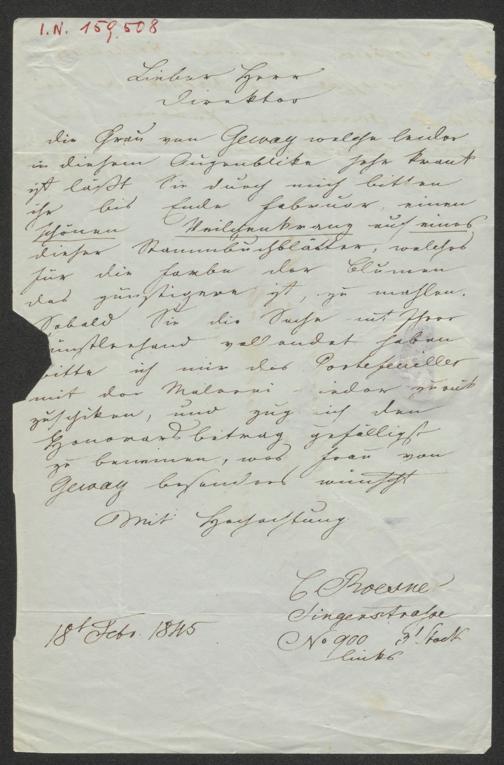 I.N. 159.508
Lieber Herr
Direktor
die Frau von Gevay welche leider
in diesem Augenblike sehr krank
ist läßt Sie durch mich bitten
ihr bis Ende Februar, einen
schönen Veilchenkranz auf eines
dieser Stammbuchblätter, welches
für die Farbe der Blumen
das günstigere ist, zu mahlen.
Sobald Sie die Sache mit Ihrer
Künstlerhand vollendet haben
bitte ich mir das Portefeuille
mit der Malerei wieder zurük
zuschiken, und mir den
Honorarsbetrag gefälligst
zu bennenen, was Frau von
Gevay besonders wünscht
Mit Hochachtung
Singerstrasse
18t Febr. 1845
No 900 3t Stock
links